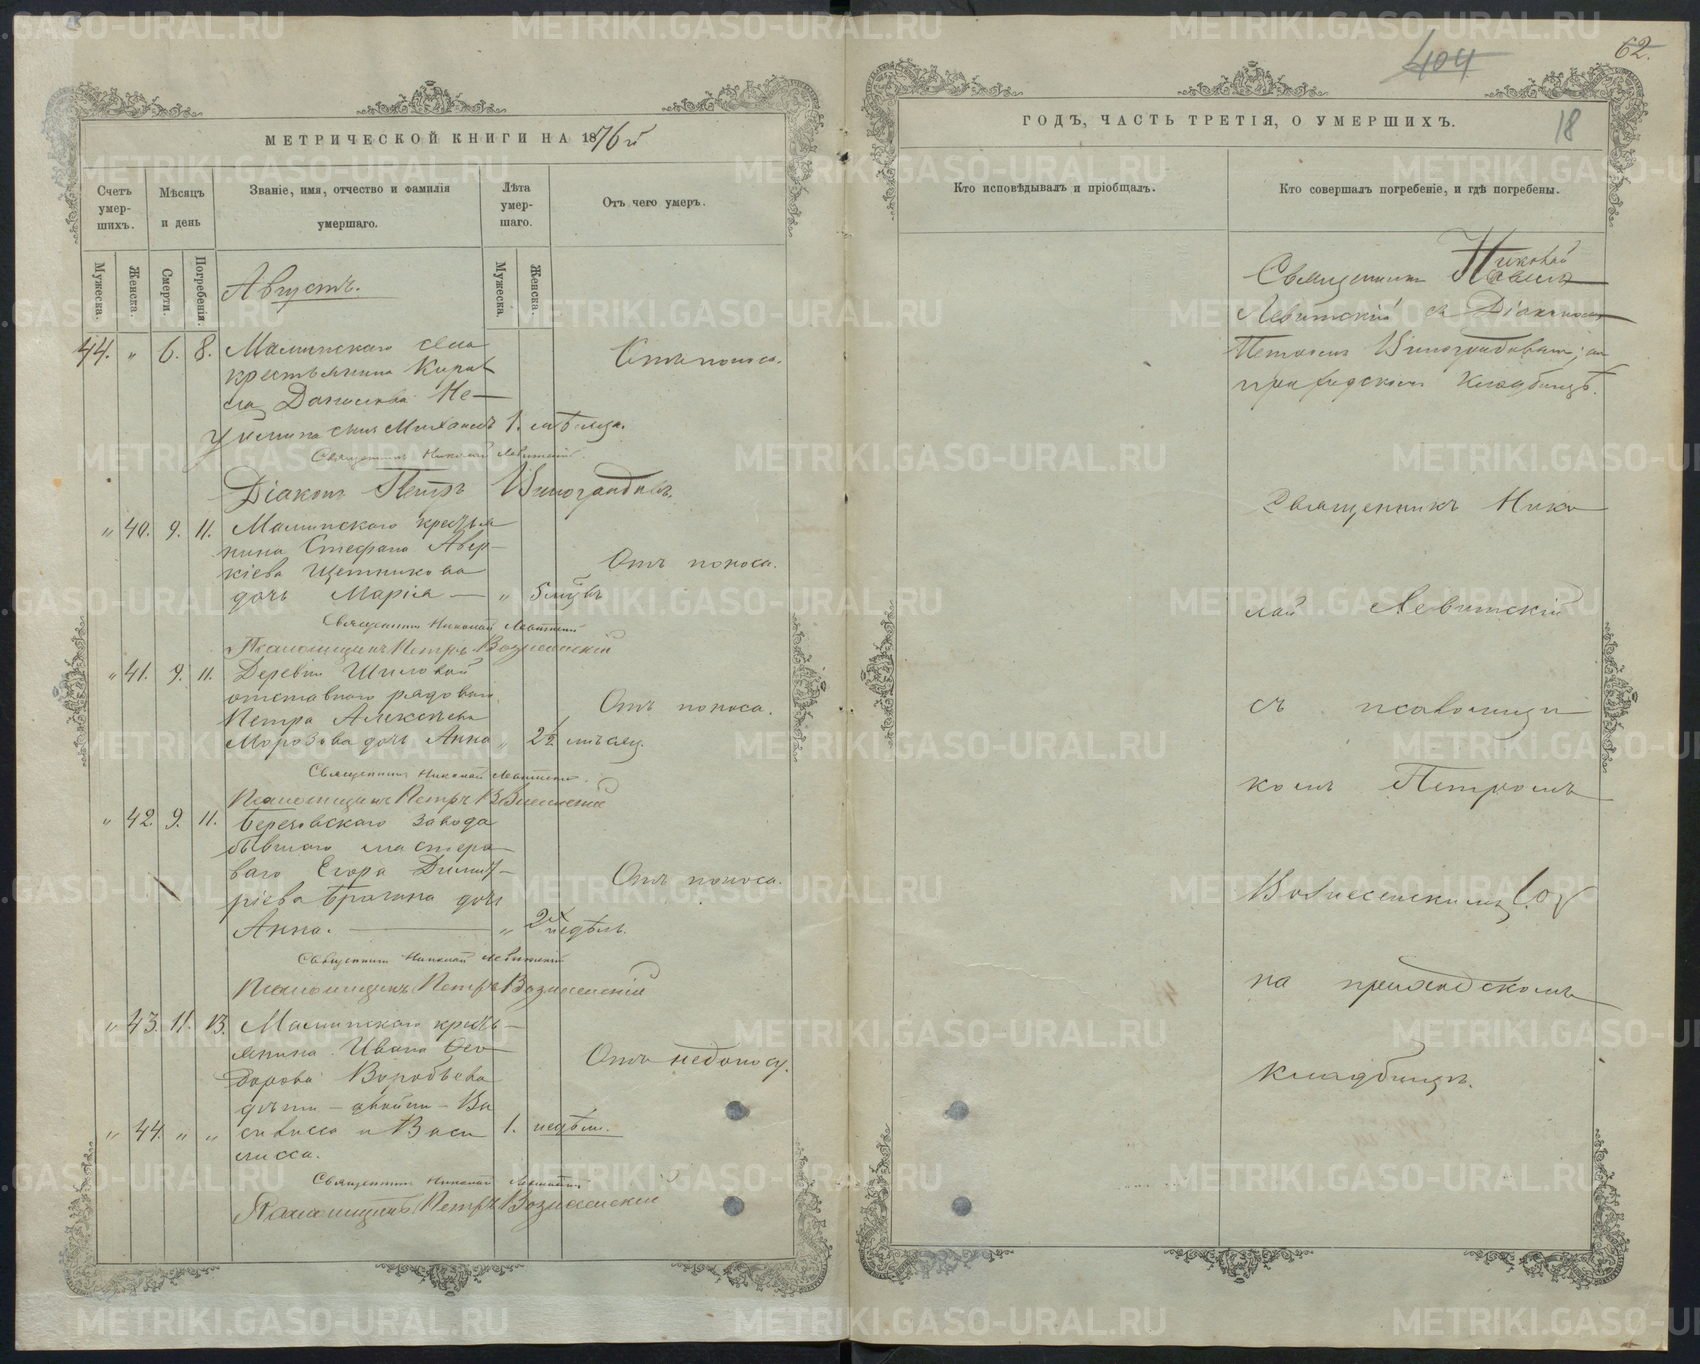 МЕТРИЧЕСКОЙ КНИГИ НА 1876й
Счетъ умер-
шихъ.
Мѣсяцъ
и день
Званіе, имя, отчество и фамилія
умершаго.
Лѣта
умер-
шаго.
Отъ чего умеръ.
Мужеска.
Женска.
Смерти.
Погребенія.
Мужеска.
Женска.
Августъ.
44. " 6. 8. Маминскаго села
крестьянина Кирил
ла Данилова Не
сынъ Михаилъ 1. мѣсяца.
Отъ поноса.
Священникъ Николай Левитскій
Діаконъ Петръ Виноградовъ.
" 40. 9. 11. Маминскаго крестья
нина Стефана Авер-
кіева Щетникова
дочь Марія — " 5 мѣс.
Отъ поноса.
Священникъ Николай Левитскій
Псаломщикъ Петръ Вознесенскій
" 41. 9. 11. Деревни Шиловой
отставнаго рядоваго
Петра Алексѣева
Морозова дочь Анна " 2½ мѣсяц.
Отъ поноса.
Священникъ Николай Левитскій
Псаломщикъ Петръ Вознесенскій
" 42. 9. 11. Березовскаго завода
бывшаго мастеро-
ваго Егора Димит-
ріева Брагина дочь
Анна. — " 2х недѣль.
Отъ поноса.
Священникъ Николай Левитскій
Псаломщикъ Петръ Вознесенскій
" 43. 11. 13. Маминскаго кресть-
янина Ивана Фео
дорова Воробьева
дѣти - двойни - Ва
" 44. " " силисса и Васи 1. недѣли.
лисса.
Отъ недоносу.
Священникъ Николай Левитскій
Псаломщикъ Петръ Вознесенскій
404
62.
18
ГОДЪ, ЧАСТЬ ТРЕТІЯ, О УМЕРШИХЪ.
Кто исповѣдывалъ и пріобщалъ.
Кто совершалъ погребеніе, и гдѣ погребены.
Священникъ Николай
Левитскій съ Діакономъ
Петромъ Виноградовымъ, на
приходскомъ кладбищѣ.
Священникъ Нико
лай Левитскій
съ псаломщи
комъ Петромъ
Вознесенскимъ
на приходскомъ
кладбищѣ.
METRIKI.GASO-URAL.RU